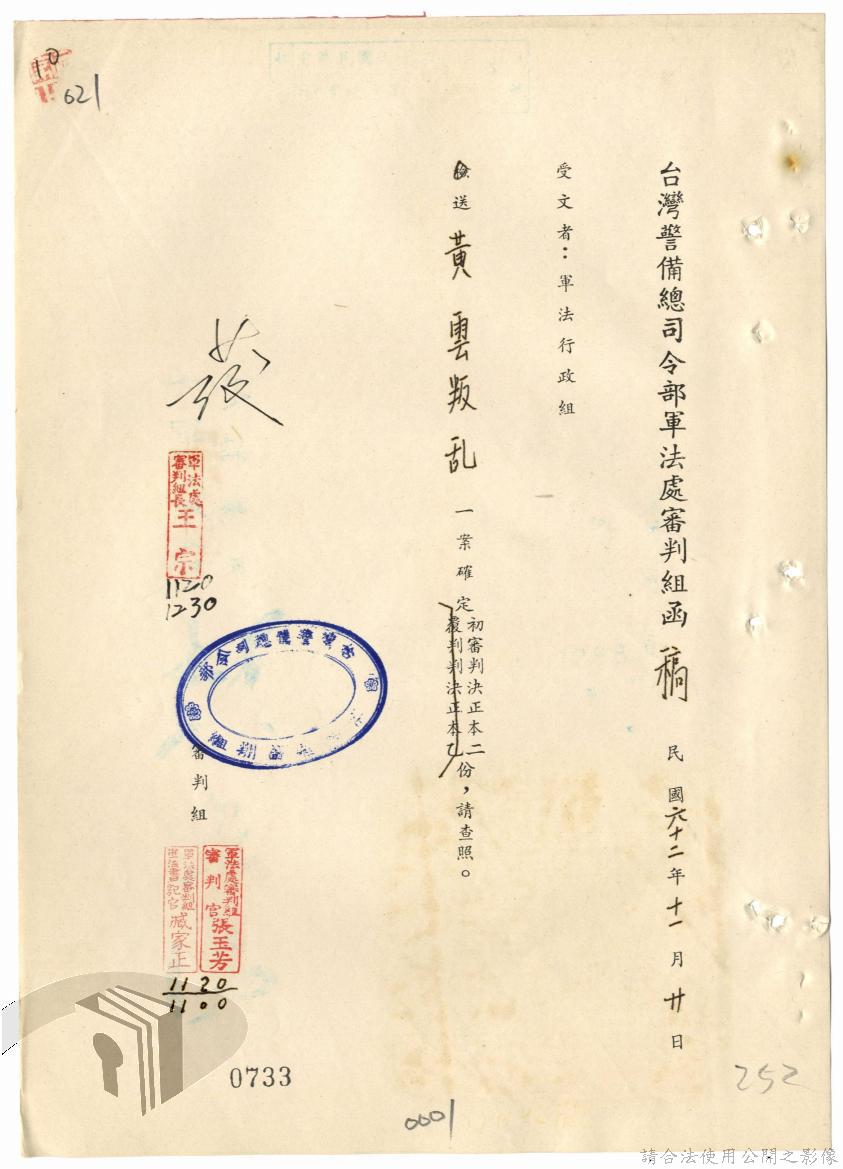 台灣警備總司令部軍法處審判組函稿
民國六十二年十一月廿日
受文者：軍法行政組
檢送黃雲叛乱一案確定初審判決正本二份，請查照。
覆判判決正本乙
發
軍法處
審判組長王宗
1120
1230
審判組
軍法處審判組
審判官張玉芳
軍法處審判組
臧家正
1120
1100
10
621
0733
0001
252
請合法使用公開之影像